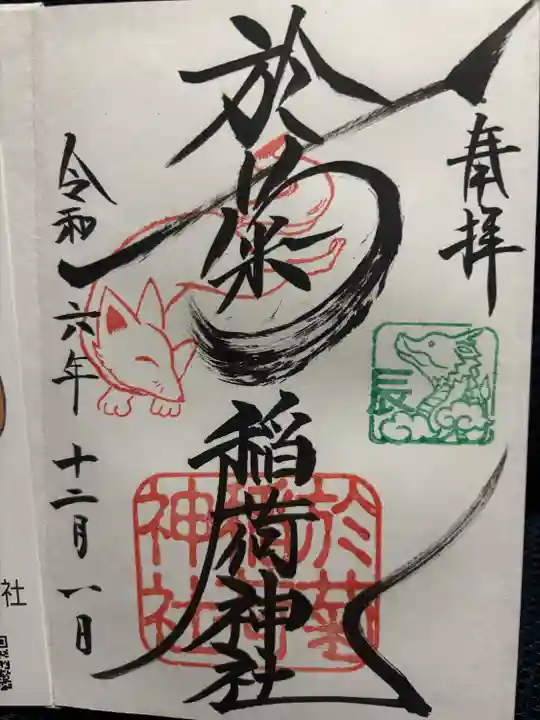 奉拝
辰
於菊
稲荷神社
於菊
稲荷
神社
令和
六年
十二月
八日
社